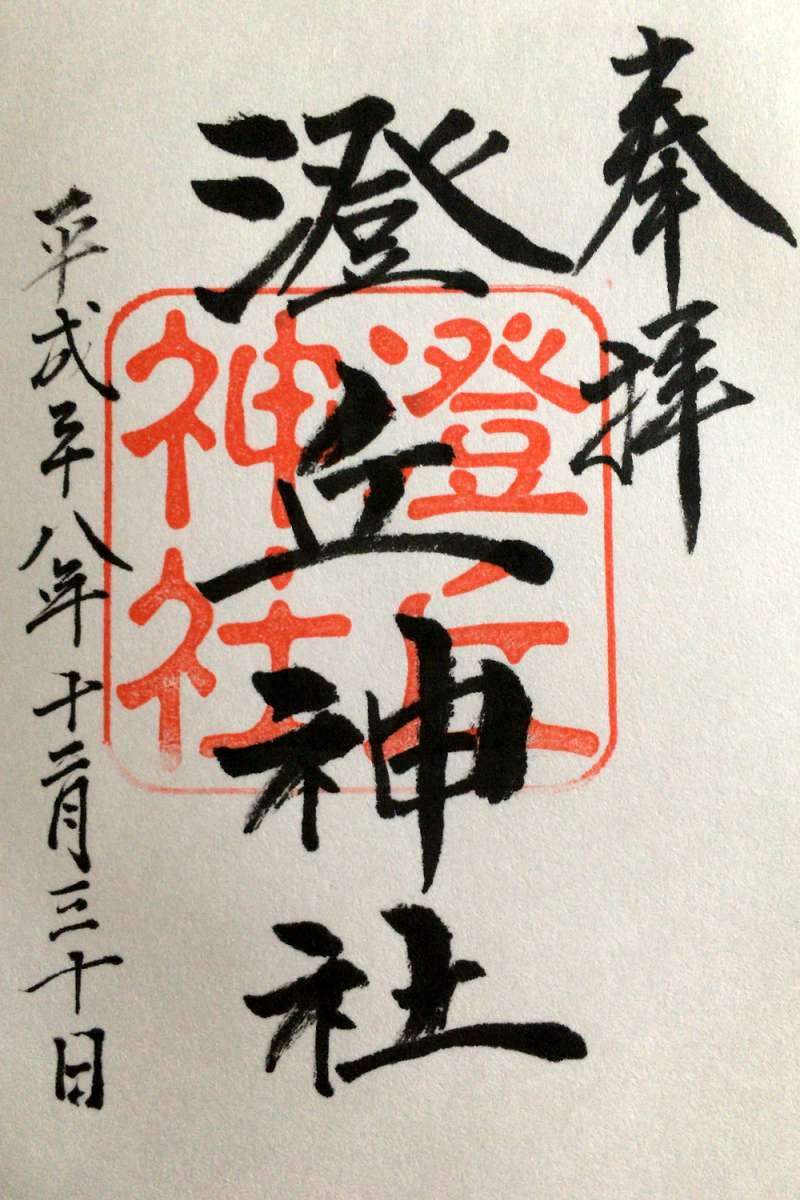 奉拝
澄丘神社
平成二十八年十二月三十日
澄丘
神社